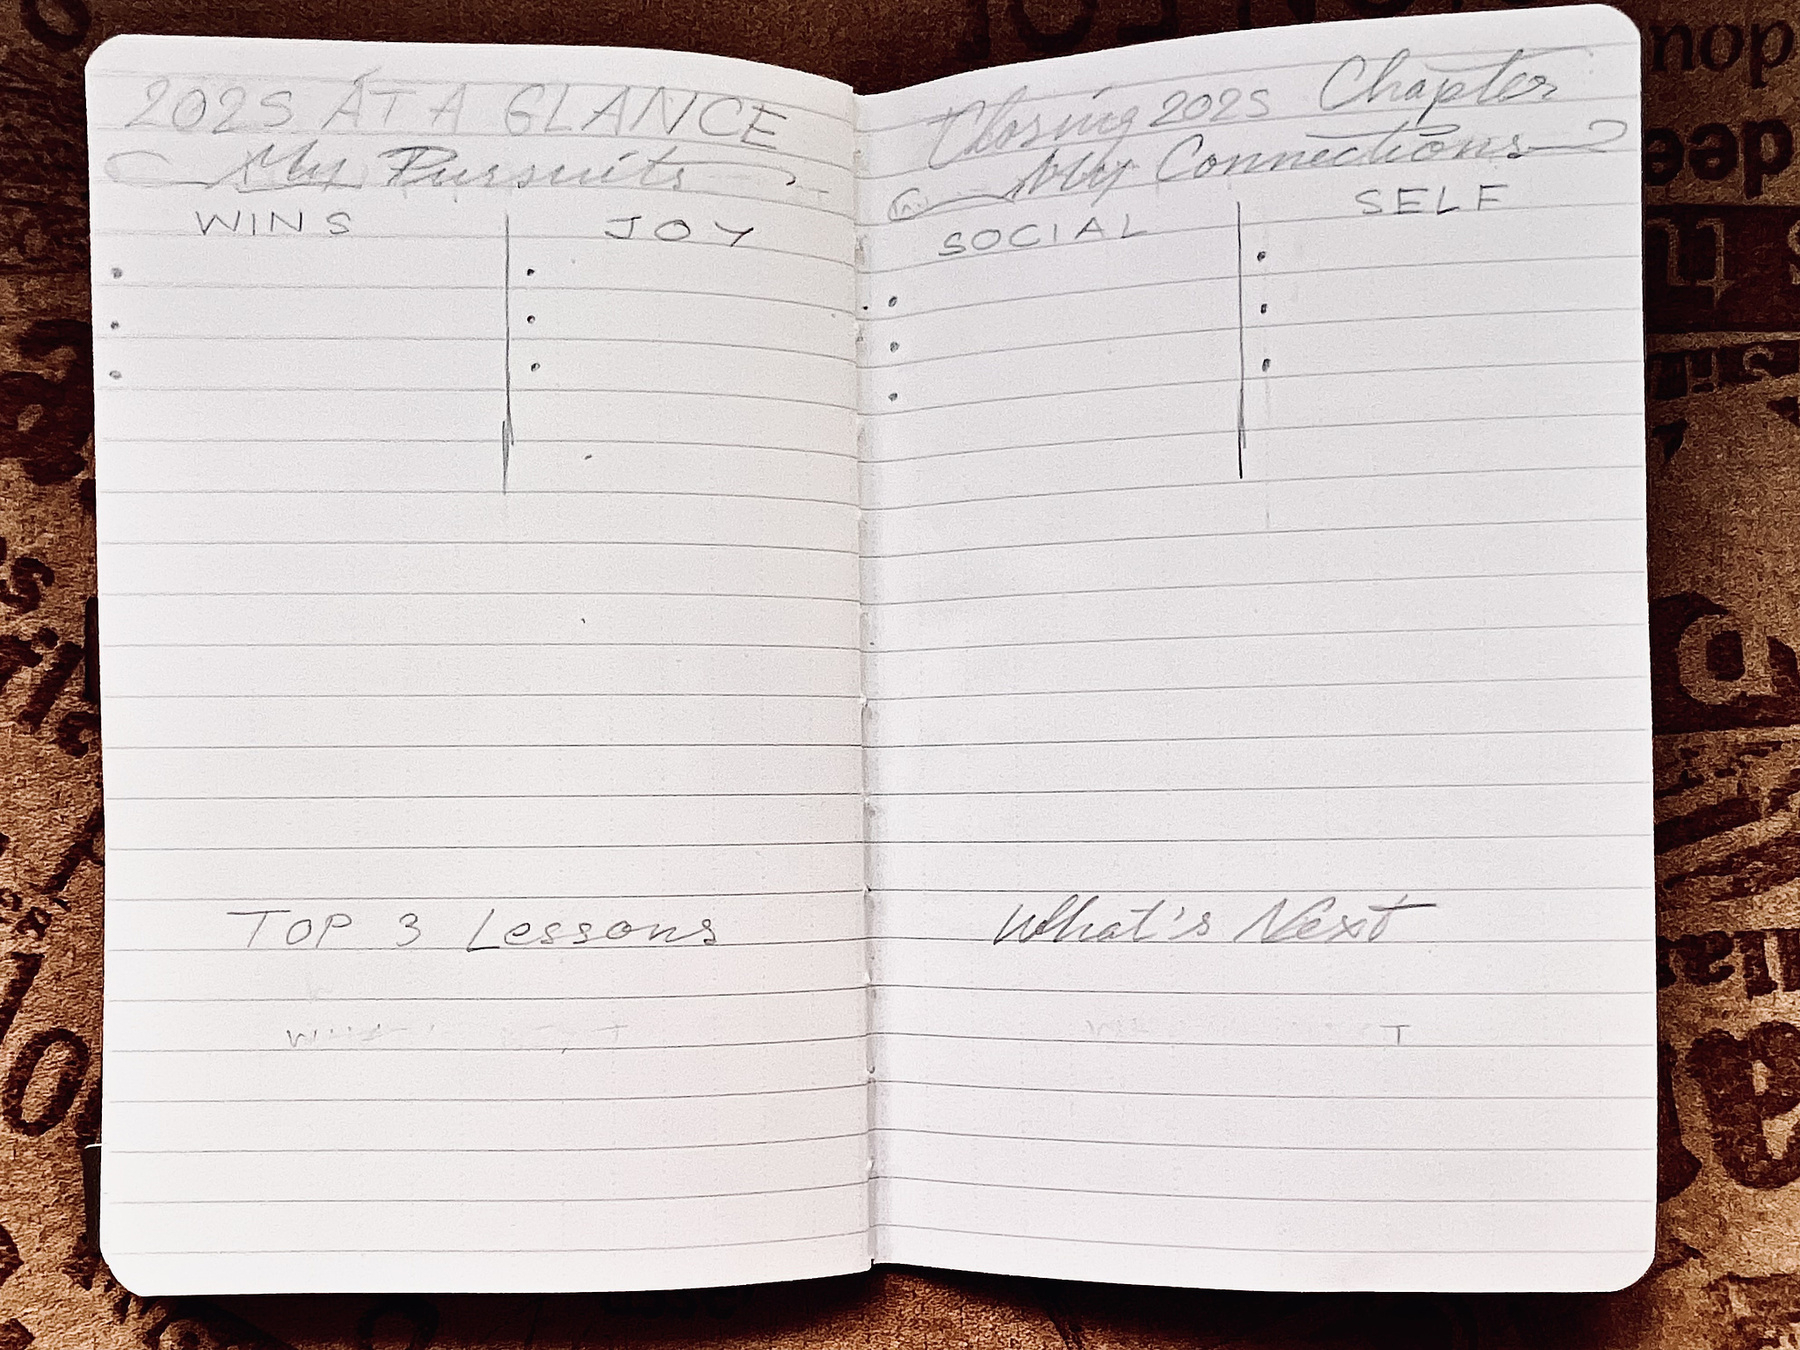 2025 AT A GLANCE
My Pursuits
WINS JOY
TOP 3 Lessons
Closing 2025 Chapter
My Connections
SOCIAL SELF
What's Next